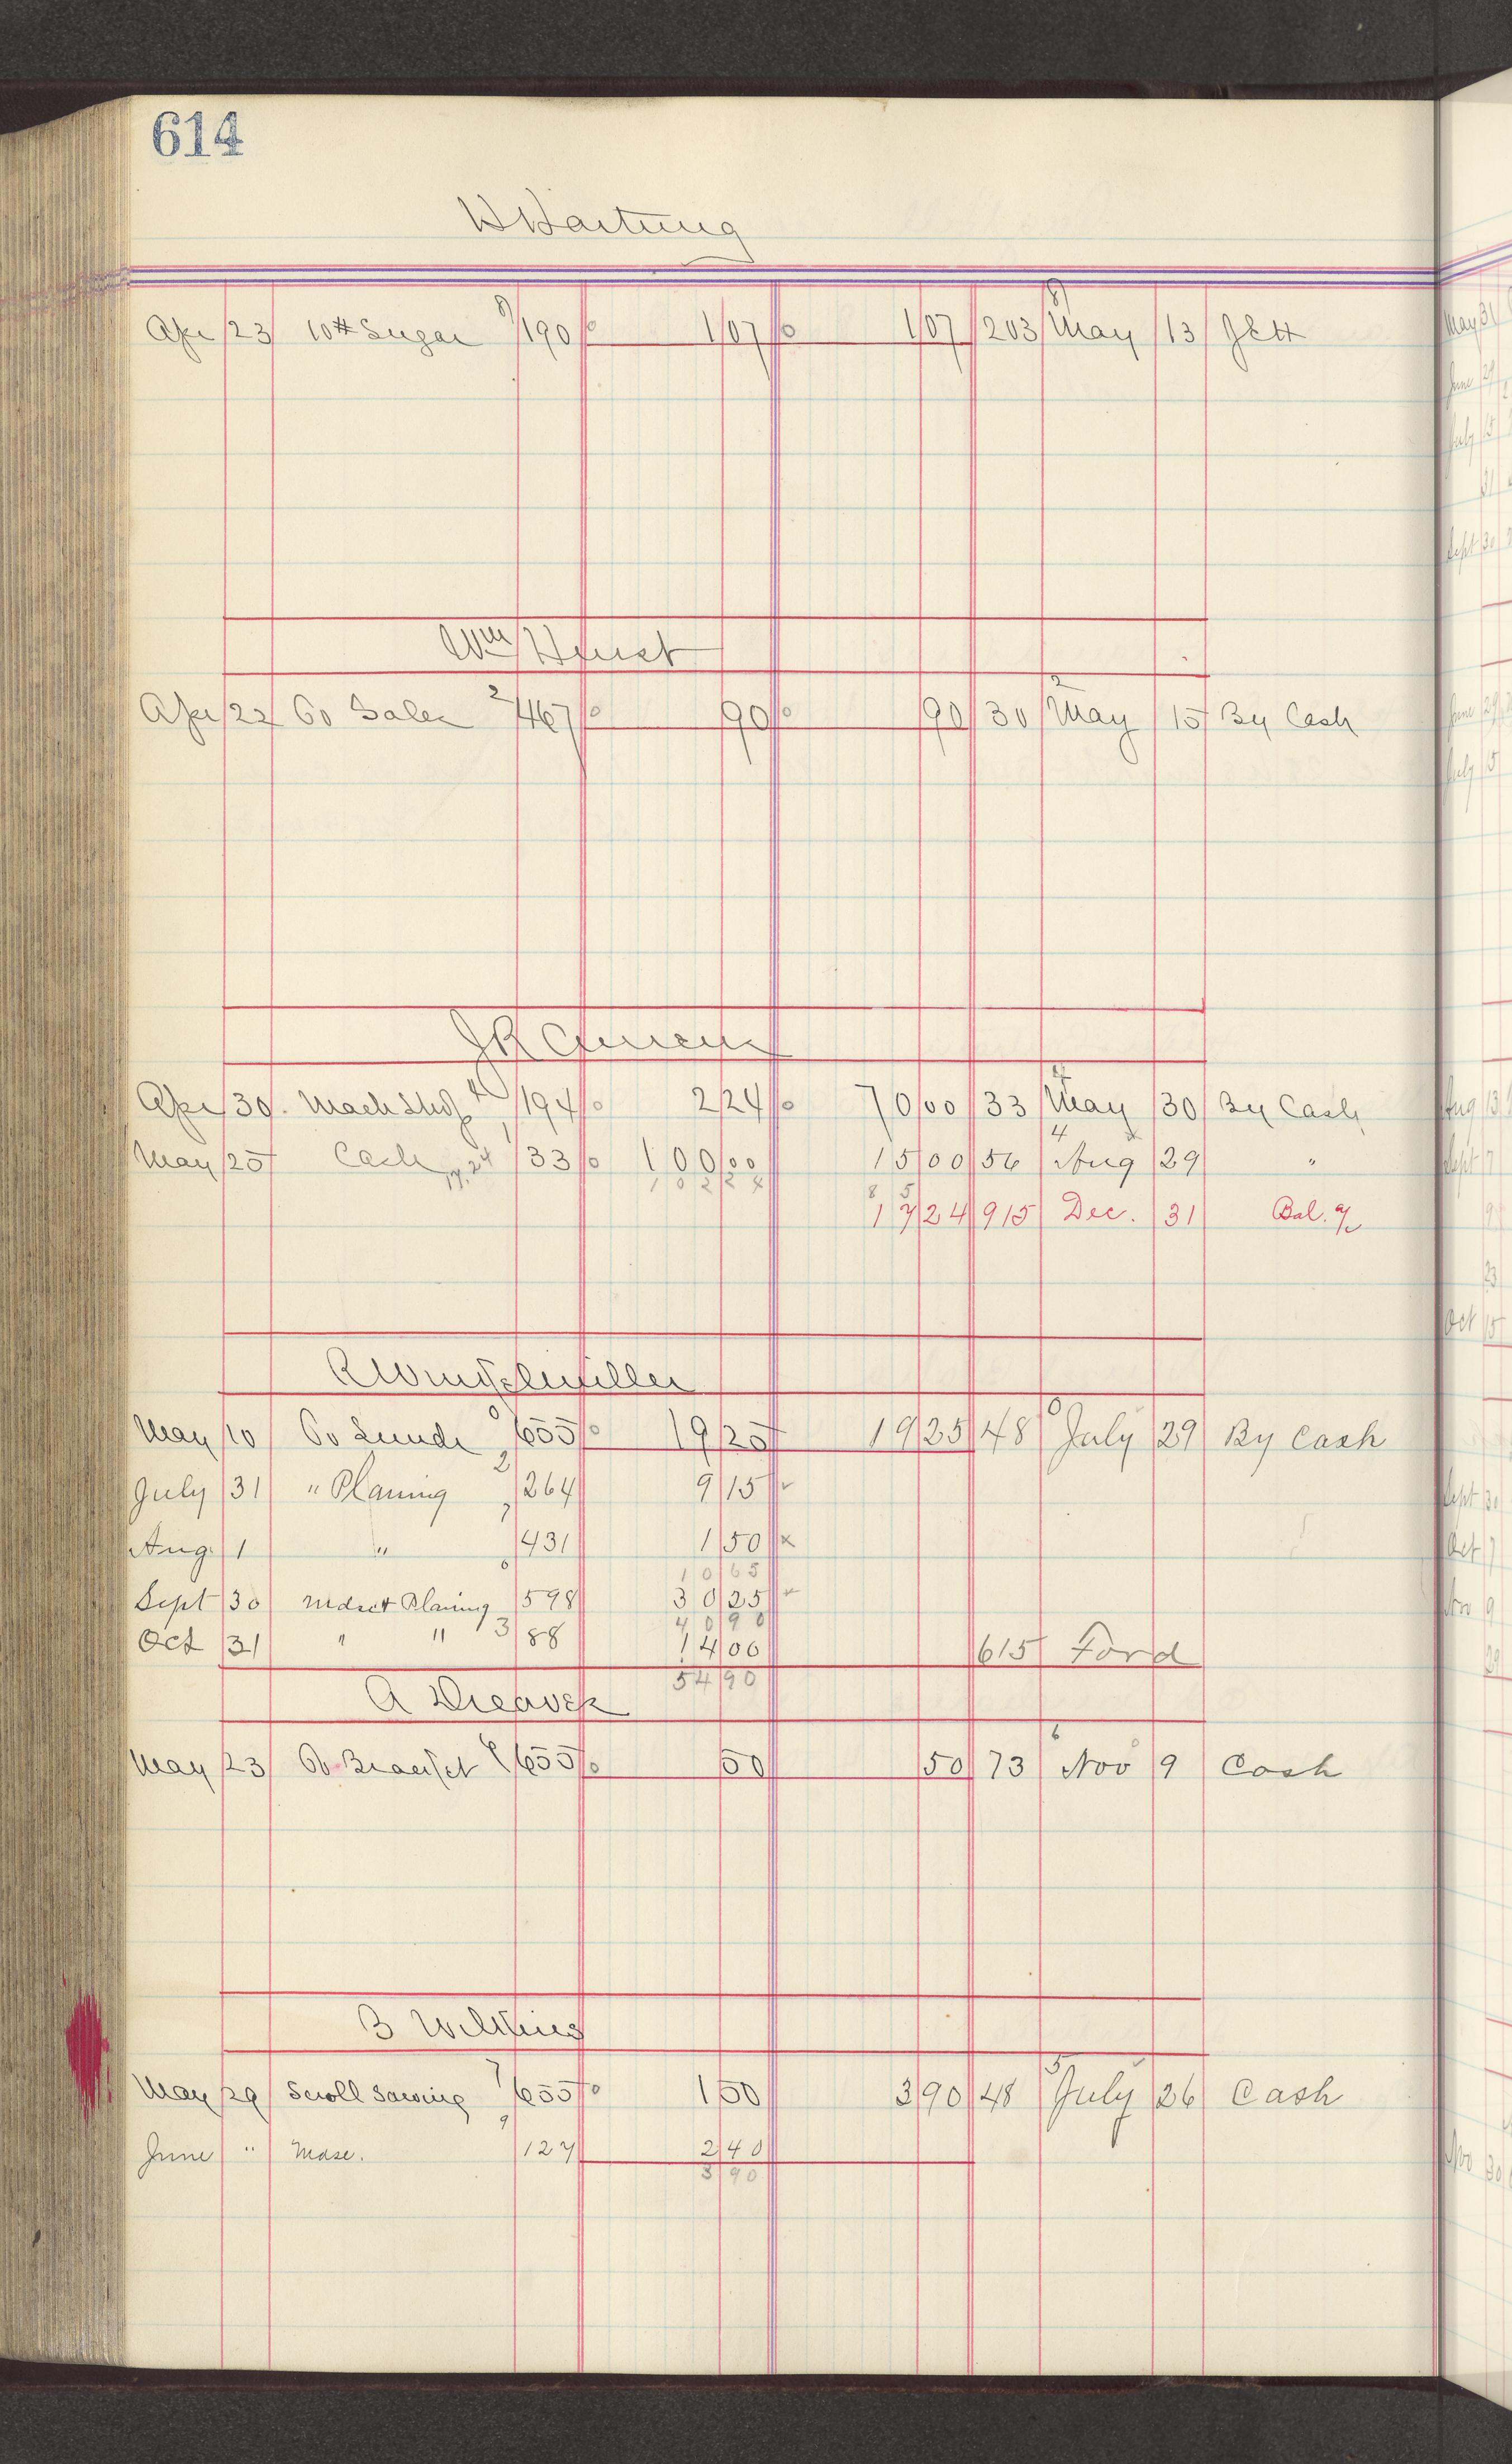 614
H Hartung
Apr 23 10# Sugar 190 1 07 1 07 203 May 13 JEH
Wm Hurst
Apr 22 Co Sales 467 90 90 30 May 15 By Cash
JR
Apr 30 Mach Shop 194 2 24 70 00 33 May 30 By Cash
May 25 Cash 17.24 33 100 00 15 00 56 Aug 29 "
102 24 85
17 24 915 Dec. 31 Bal. a/c
R
May 10 655 19 25 19 25 48 July 29 By Cash
July 31 " Planing 264 9 15
Aug. 1 " 431 1 50
10 65
Sept 30 Mdse + Planing 598 30 25
40 90
Oct 31 " " 88 14 00 615 Ford
54 90
A Dreaver
May 23 655 50 50 73 Nov 9 Cash
B Wilkins
May 29 Scroll Sawing 655 1 50 3 90 48 July 26 Cash
June " Mdse. 127 2 40
3 90